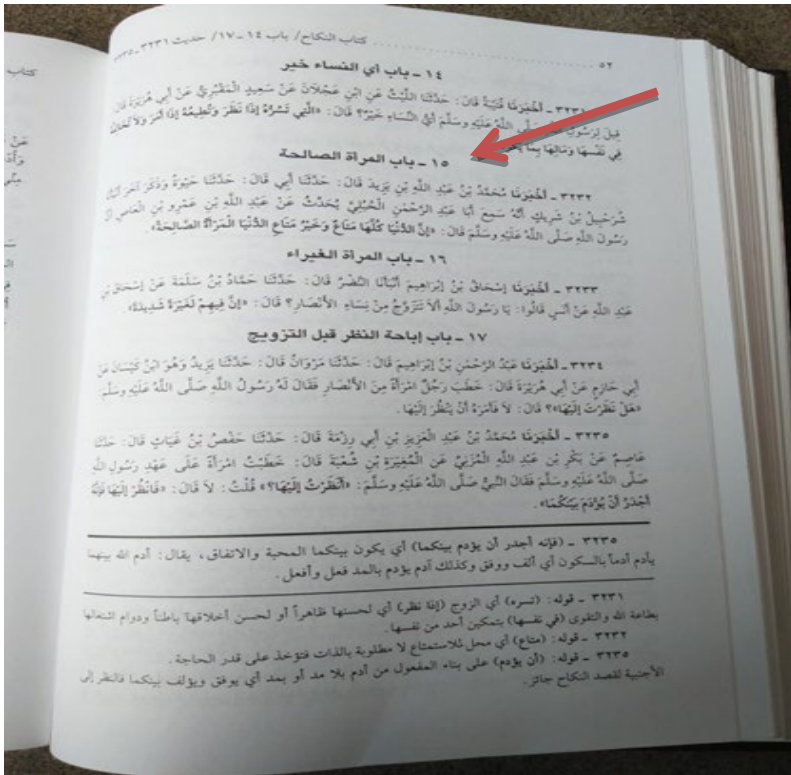 ٥٢ كتاب النكاح/ باب ١٤ ـ ١٧/ حديث ٣٢٣١ ـ ٣٢٣٥
كتاب
١٤ ـ باب أي النساء خير
٣٢٣١ ـ أَخْبَرَنَا قُتَيْبَةُ قَالَ: حَدَّثَنَا اللَّيْثُ عَنِ ابْنِ عَجْلَانَ عَنْ سَعِيدٍ الْمَقْبُرِيِّ عَنْ أَبِي هُرَيْرَةَ قَالَ
قِيلَ لِرَسُولِ صَلَّى اللَّهُ عَلَيْهِ وَسَلَّمَ أَيُّ النِّسَاءِ خَيْرٌ؟ قَالَ: «الَّتِي تَسُرُّهُ إِذَا نَظَرَ وَتُطِيعُهُ إِذَا أَمَرَ وَلَا تُخَالِفُهُ
فِي نَفْسِهَا وَمَالِهَا بِمَا
١٥ ـ باب المرأة الصالحة
٣٢٣٢ ـ أَخْبَرَنَا مُحَمَّدُ بْنُ عَبْدِ اللَّهِ بْنِ يَزِيدَ قَالَ: حَدَّثَنَا أَبِي قَالَ: حَدَّثَنَا حَيْوَةُ وَذَكَرَ آخَرَ أَنْبَأَنَا
شُرَحْبِيلُ بْنُ شَرِيكٍ أَنَّهُ سَمِعَ أَبَا عَبْدِ الرَّحْمَنِ الْحُبُلِيَّ يُحَدِّثُ عَنْ عَبْدِ اللَّهِ بْنِ عَمْرِو بْنِ الْعَاصِ أَنَّ
رَسُولَ اللَّهِ صَلَّى اللَّهُ عَلَيْهِ وَسَلَّمَ قَالَ: «إِنَّ الدُّنْيَا كُلَّهَا مَتَاعٌ وَخَيْرُ مَتَاعِ الدُّنْيَا الْمَرْأَةُ الصَّالِحَةُ».
١٦ ـ باب المرأة الغيراء
٣٢٣٣ ـ أَخْبَرَنَا إِسْحَاقُ بْنُ إِبْرَاهِيمَ أَنْبَأَنَا النَّضْرُ قَالَ: حَدَّثَنَا حَمَّادُ بْنُ سَلَمَةَ عَنْ إِسْحَاقَ بْنِ
عَبْدِ اللَّهِ عَنْ أَنَسٍ قَالُوا: يَا رَسُولَ اللَّهِ أَلَا تَتَزَوَّجُ مِنْ نِسَاءِ الْأَنْصَارِ؟ قَالَ: «إِنَّ فِيهِمْ لَغَيْرَةً شَدِيدَةً».
١٧ ـ باب إباحة النظر قبل التزويج
٣٢٣٤ ـ أَخْبَرَنَا عَبْدُ الرَّحْمَنِ بْنُ إِبْرَاهِيمَ قَالَ: حَدَّثَنَا مَرْوَانُ قَالَ: حَدَّثَنَا يَزِيدُ وَهُوَ ابْنُ كَيْسَانَ عَنْ
أَبِي حَازِمٍ عَنْ أَبِي هُرَيْرَةَ قَالَ: خَطَبَ رَجُلٌ امْرَأَةً مِنَ الْأَنْصَارِ فَقَالَ لَهُ رَسُولُ اللَّهِ صَلَّى اللَّهُ عَلَيْهِ وَسَلَّمَ:
«هَلْ نَظَرْتَ إِلَيْهَا»؟ قَالَ: لَا فَأَمَرَهُ أَنْ يَنْظُرَ إِلَيْهَا.
٣٢٣٥ ـ أَخْبَرَنَا مُحَمَّدُ بْنُ عَبْدِ الْعَزِيزِ بْنِ أَبِي رِزْمَةَ قَالَ: حَدَّثَنَا حَفْصُ بْنُ غِيَاثٍ قَالَ: حَدَّثَنَا
عَاصِمٌ عَنْ بَكْرِ بْنِ عَبْدِ اللَّهِ الْمُزَنِيِّ عَنِ الْمُغِيرَةِ بْنِ شُعْبَةَ قَالَ: خَطَبْتُ امْرَأَةً عَلَى عَهْدِ رَسُولِ اللَّهِ
صَلَّى اللَّهُ عَلَيْهِ وَسَلَّمَ فَقَالَ النَّبِيُّ صَلَّى اللَّهُ عَلَيْهِ وَسَلَّمَ: «أَنَظَرْتَ إِلَيْهَا؟» قُلْتُ: لَا قَالَ: «فَانْظُرْ إِلَيْهَا فَإِنَّهُ
أَجْدَرُ أَنْ يُؤْدَمَ بَيْنَكُمَا».
٣٢٣٥ ـ (فإنه أجدر أن يؤدم بينكما) أي يكون بينكما المحبة والاتفاق، يقال: أدم الله بينهما
يأدم أدماً بالسكون أي ألف ووفق وكذلك آدم يؤدم بالمد فعل وأفعل.
٣٢٣١ ـ قوله: (تسره) أي الزوج (إذا نظر) أي لحسنها ظاهراً أو لحسن أخلاقها باطناً ودوام اشتغالها
بطاعة الله والتقوى (في نفسها) بتمكين أحد من نفسها.
٣٢٣٢ ـ قوله: (متاع) أي محل للاستمتاع لا مطلوبة بالذات فتؤخذ على قدر الحاجة.
٣٢٣٥ ـ قوله: (أن يؤدم) على بناء المفعول من أدم بلا مد أو بمد أي يوفق ويؤلف بينكما فالنظر إلى
الأجنبية لقصد النكاح جائز.